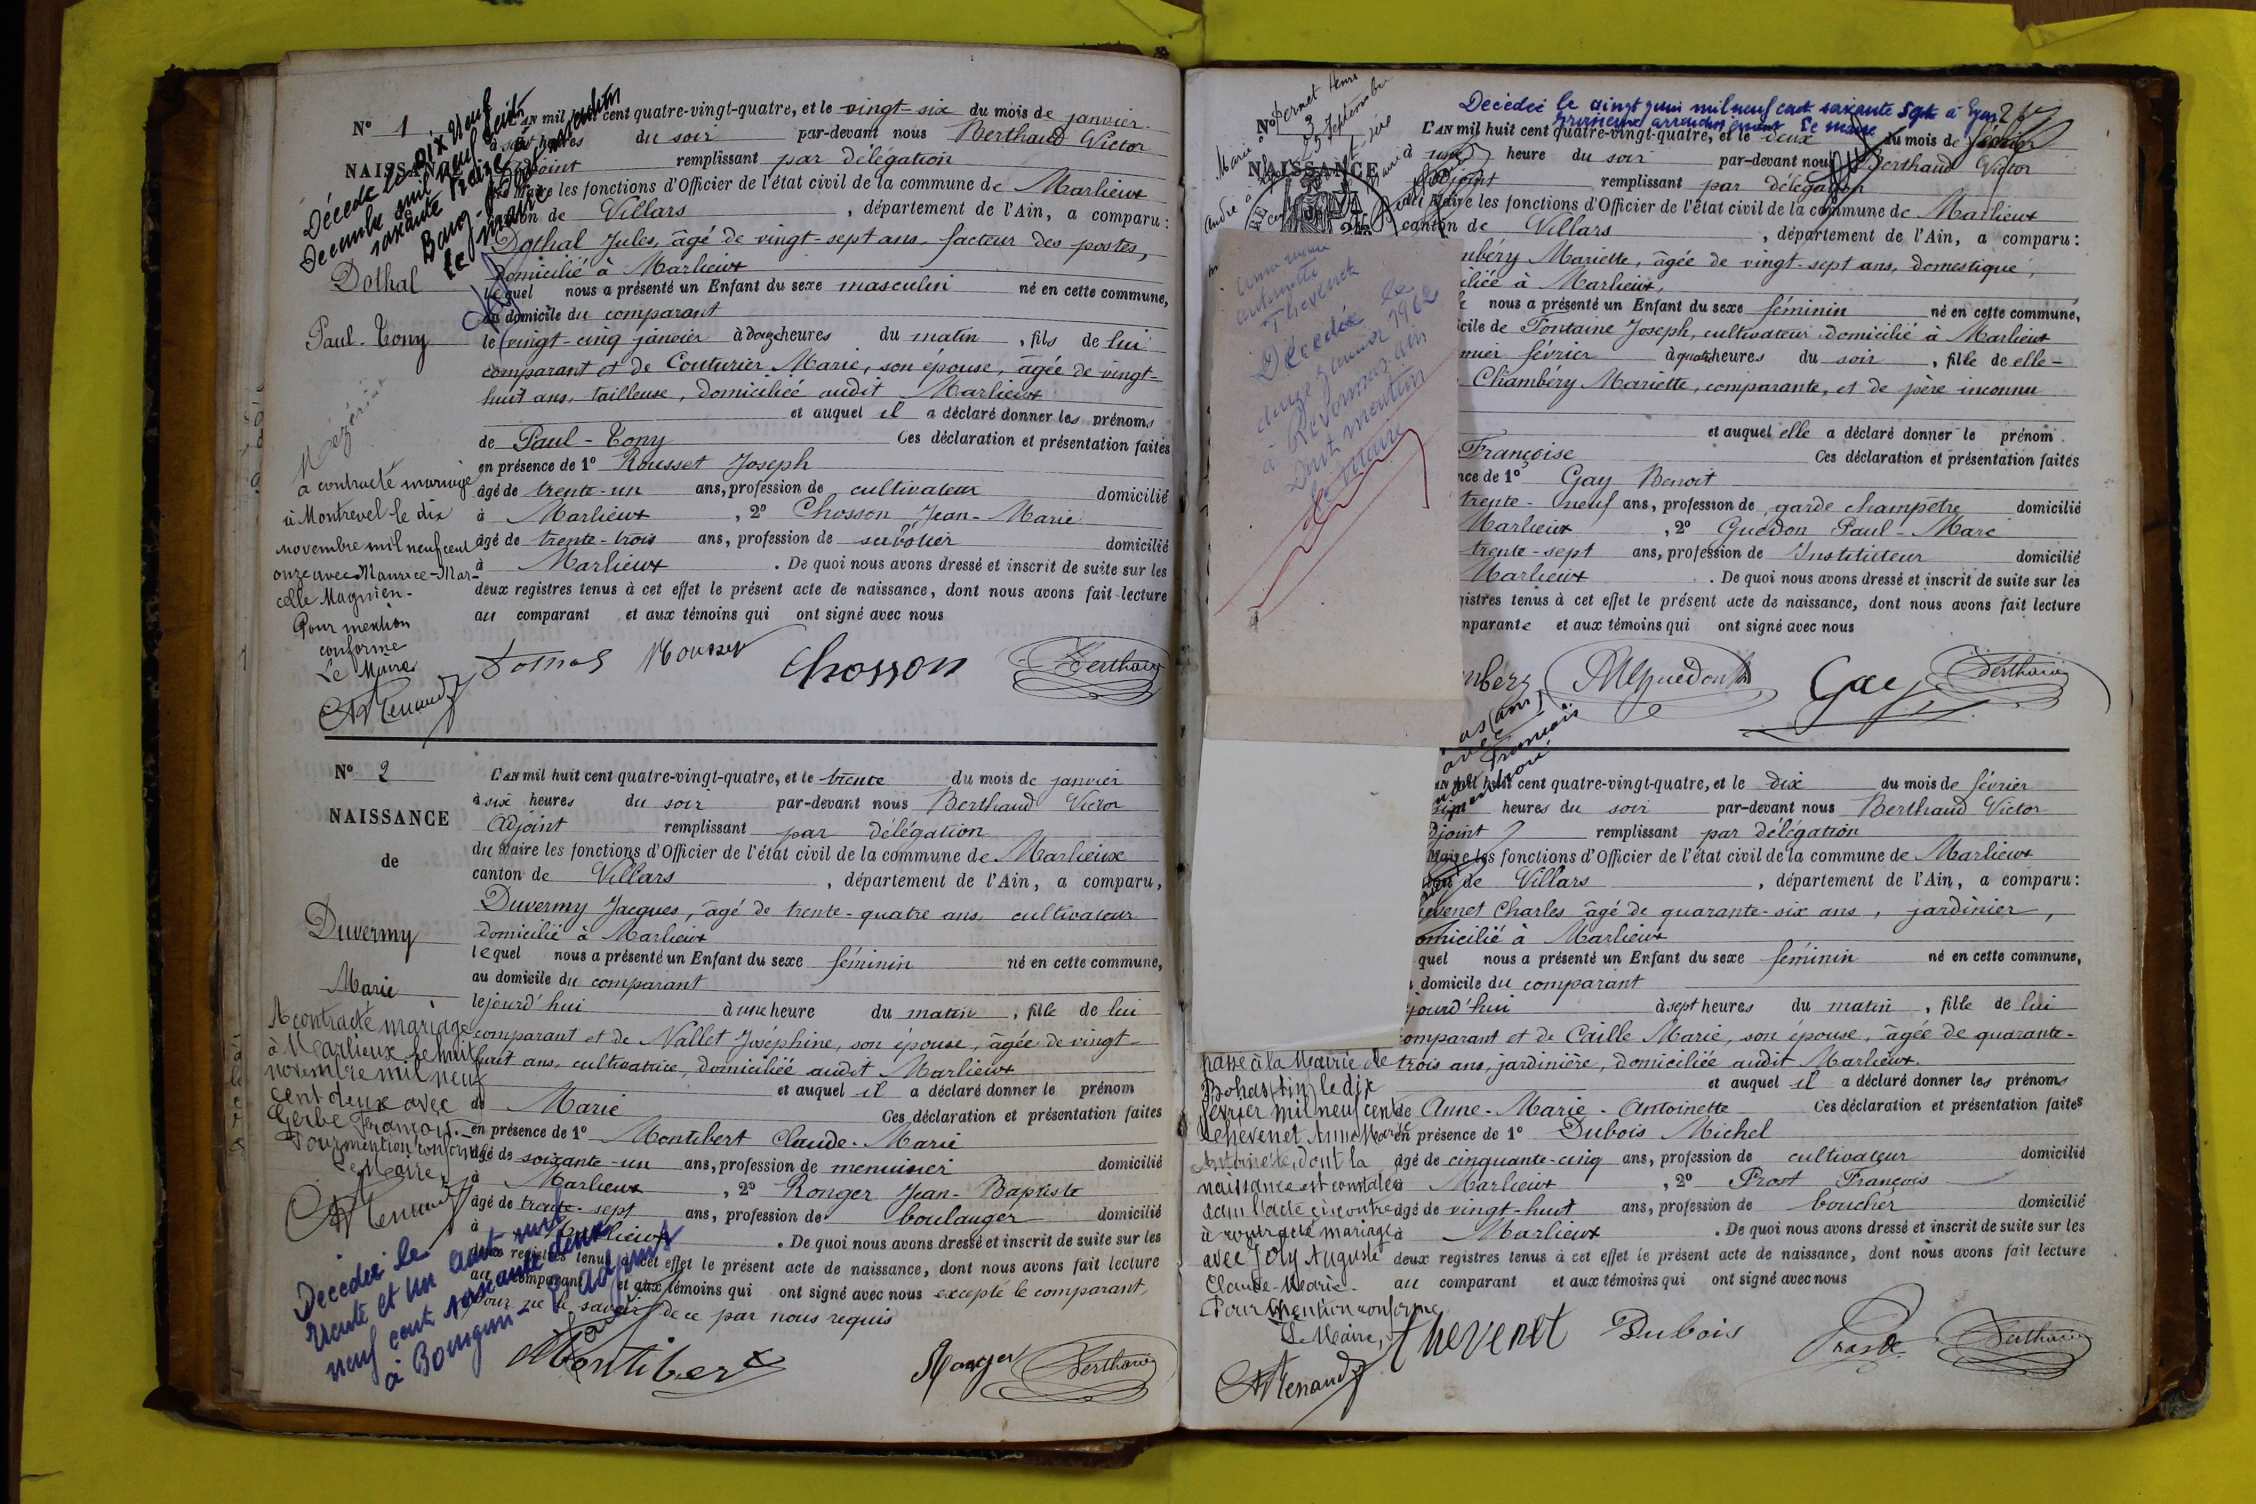 N° 1
NAISSANCE
Décédé le dix neuf
Décembre mil neuf cent
soixante treize à
Bourg
le maire
Dothal
Paul-Tony
a contracté mariage
à Montrevel le dix
novembre mil neuf cent
onze avec Maurice-Mar-
celle Magnien.
Pour mention
conforme
Le Maire
L'AN mil huit cent quatre-vingt-quatre, et le vingt-six du mois de janvier
à heures du soir par-devant nous Berthaud Victor
adjoint remplissant par délégation
du maire les fonctions d'Officier de l'état civil de la commune de Marlieux
canton de Villars , département de l'Ain, a comparu :
Dothal Jules, âgé de vingt-sept ans, facteur des postes,
domicilié à Marlieux
lequel nous a présenté un Enfant du sexe masculin né en cette commune,
au domicile du comparant
le vingt-cinq janvier à heures du matin , fils de lui
comparant et de Couturier Marie, son épouse, âgée de vingt-
huit ans, tailleuse, domiciliée audit Marlieux
et auquel il a déclaré donner les prénoms
de Paul-Tony Ces déclaration et présentation faites
en présence de 1° Rousset Joseph
âgé de trente-un ans, profession de cultivateur domicilié
à Marlieux , 2° Chosson Jean-Marie
âgé de trente-trois ans, profession de sabotier domicilié
à Marlieux . De quoi nous avons dressé et inscrit de suite sur les
deux registres tenus à cet effet le présent acte de naissance, dont nous avons fait lecture
au comparant et aux témoins qui ont signé avec nous
Chosson Berthaud
N° 2
NAISSANCE
de
Duvermy
Marie
A contracté mariage
à Marlieux le huit
novembre mil neuf
cent deux avec
Gerbe François.
Pour mention conforme
Le Maire
Décédée le
trente et un août mil
neuf cent soixante deux
à Bourgoin
L'AN mil huit cent quatre-vingt-quatre, et le trente du mois de janvier
à six heures du soir par-devant nous Berthaud Victor
Adjoint remplissant par délégation
du maire les fonctions d'Officier de l'état civil de la commune de Marlieux
canton de Villars , département de l'Ain, a comparu,
Duvermy Jacques, âgé de trente-quatre ans, cultivateur
domicilié à Marlieux
lequel nous a présenté un Enfant du sexe féminin né en cette commune,
au domicile du comparant
lejourd'hui à une heure du matin , fille de lui
comparant et de Vallet Joséphine, son épouse, âgée de vingt-
huit ans, cultivatrice, domiciliée audit Marlieux
et auquel il a déclaré donner le prénom
de Marie Ces déclaration et présentation faites
en présence de 1° Montibert Claude-Marie
âgé de soixante-un ans, profession de menuisier domicilié
à Marlieux , 2° Ronger Jean-Baptiste
âgé de trente-sept ans, profession de boulanger domicilié
à Marlieux . De quoi nous avons dressé et inscrit de suite sur les
deux registres tenus à cet effet le présent acte de naissance, dont nous avons fait lecture
au comparant et aux témoins qui ont signé avec nous excepté le comparant,
pour ne le savoir de ce par nous requis
Montibert Ronger Berthaud
Décédée le vingt juin mil neuf cent soixante sept à Lyon
arrondissement Le maire
N° 3
NAISSANCE
L'AN mil huit cent quatre-vingt-quatre, et le deux du mois de février
à une heure du soir par-devant nous Berthaud Victor
adjoint remplissant par délégation
du Maire les fonctions d'Officier de l'état civil de la commune de Marlieux
canton de Villars , département de l'Ain, a comparu :
mbéry Mariette, âgée de vingt-sept ans, domestique,
iliée à Marlieux,
nous a présenté un Enfant du sexe féminin né en cette commune,
icile de Fontaine Joseph, cultivateur domicilié à Marlieux
mier février à quatre heures du soir , fille de elle-
Chambéry Mariette, comparante, et de père inconnu
et auquel elle a déclaré donner le prénom
Françoise Ces déclaration et présentation faites
nce de 1° Gay Benoit
trente-neuf ans, profession de garde champêtre domicilié
Marlieux , 2° Guédon Paul-Marc
trente-sept ans, profession de Instituteur domicilié
Marlieux . De quoi nous avons dressé et inscrit de suite sur les
gistres tenus à cet effet le présent acte de naissance, dont nous avons fait lecture
mparante et aux témoins qui ont signé avec nous
Guédon Gay Berthaud
Anne marie
antoinette
Thevenet
Décédée le
douze janvier 1962
à Revonnas ain
Dont mention
le maire
AN mil huit cent quatre-vingt-quatre, et le dix du mois de février
heures du soir par-devant nous Berthaud Victor
djoint remplissant par délégation
Maire les fonctions d'Officier de l'état civil de la commune de Marlieux
de Villars , département de l'Ain, a comparu :
evenet Charles âgé de quarante-six ans, jardinier,
omicilié à Marlieux
quel nous a présenté un Enfant du sexe féminin né en cette commune,
domicile du comparant
jourd'hui à sept heures du matin , fille de lui
omparant et de Caille Marie, son épouse, âgée de quarante-
trois ans, jardinière, domiciliée audit Marlieux.
et auquel il a déclaré donner les prénoms
de Anne-Marie-Antoinette Ces déclaration et présentation faites
en présence de 1° Dubois Michel
âgé de cinquante-cinq ans, profession de cultivateur domicilié
à Marlieux , 2° Prost François
âgé de vingt-huit ans, profession de boucher domicilié
à Marlieux . De quoi nous avons dressé et inscrit de suite sur les
deux registres tenus à cet effet le présent acte de naissance, dont nous avons fait lecture
au comparant et aux témoins qui ont signé avec nous
passé à la Mairie de
Bohas (Ain) le dix
février mil neuf cent
Thevenet Anne Marie
Antoinette, dont la
naissance est constatée
dans l'acte ci-contre
a contracté mariage
avec Joly Auguste
Claude-Marie.
Pour mention conforme
Le Maire,
Thevenet Dubois Prost Berthaud